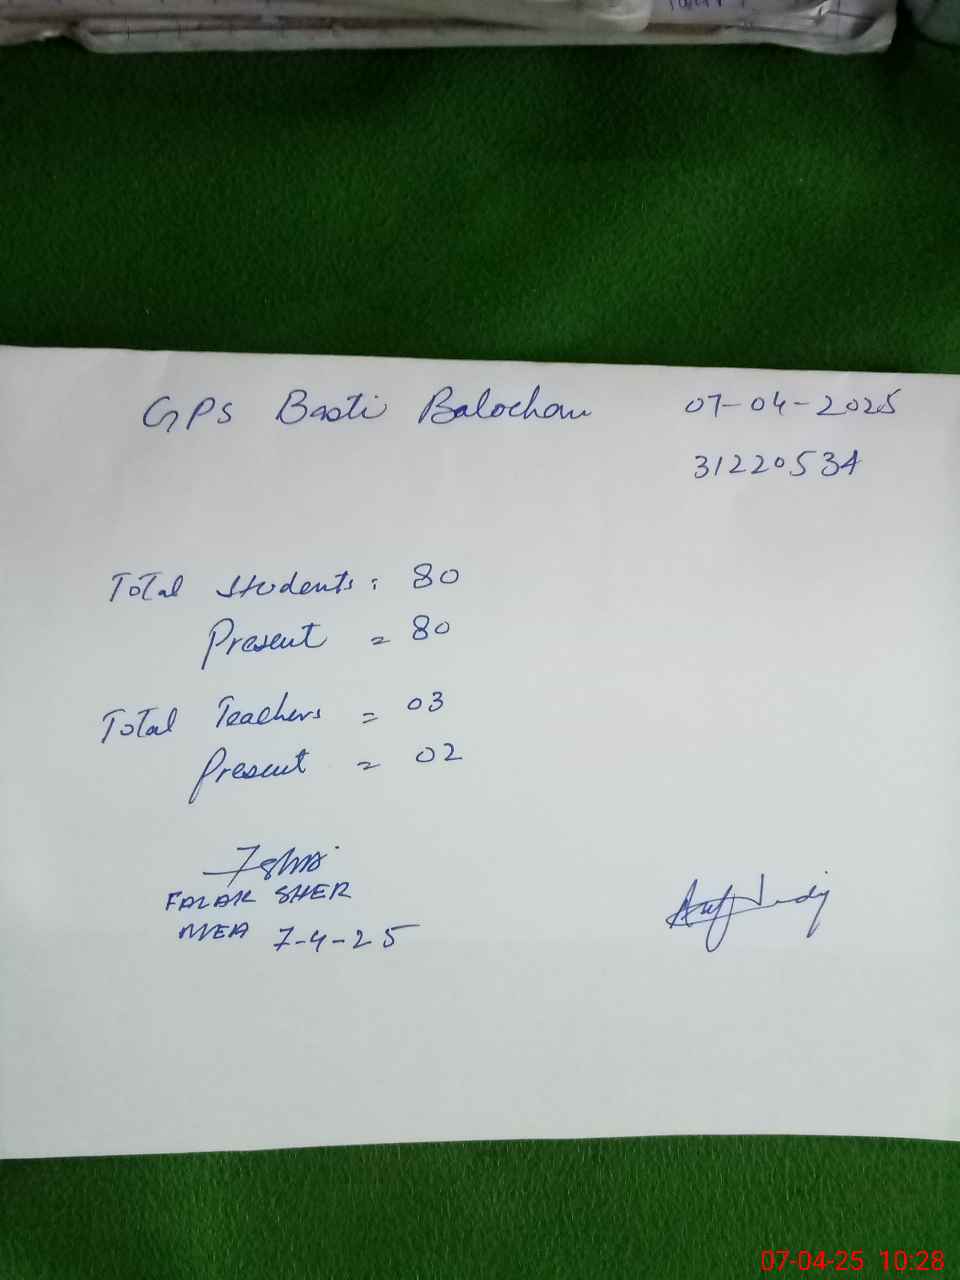 GPS Basti Balochan 07-04-2025
31220534
Total Students: 80
Present = 80
Total Teachers = 03
Present = 02
FALAK SHER
MEA 7-4-25
07-04-25 10:28